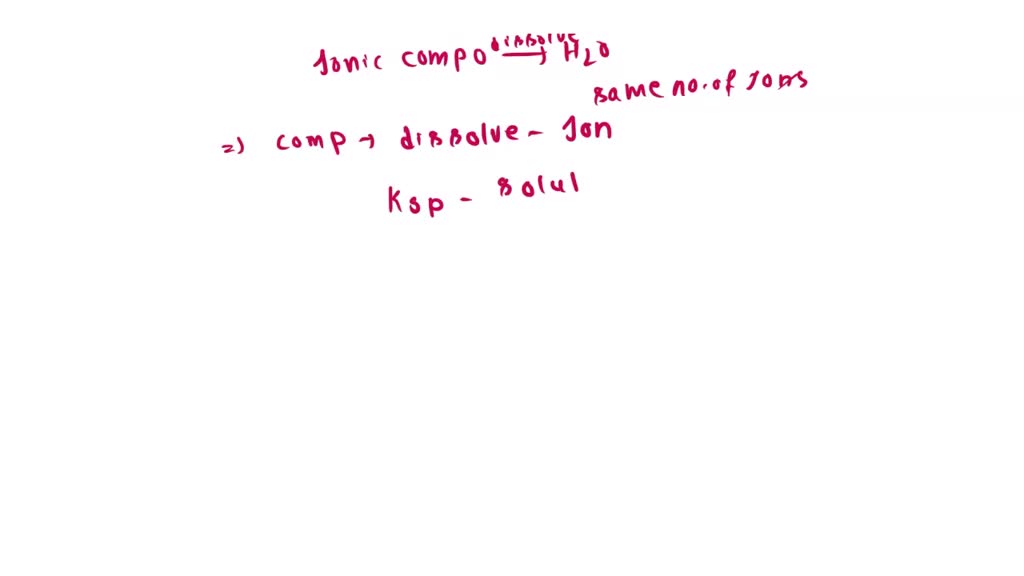 Ionic compo dissolve → H2O
same no. of Ions
=) comp → dissolve - Ion
Ksp - solul